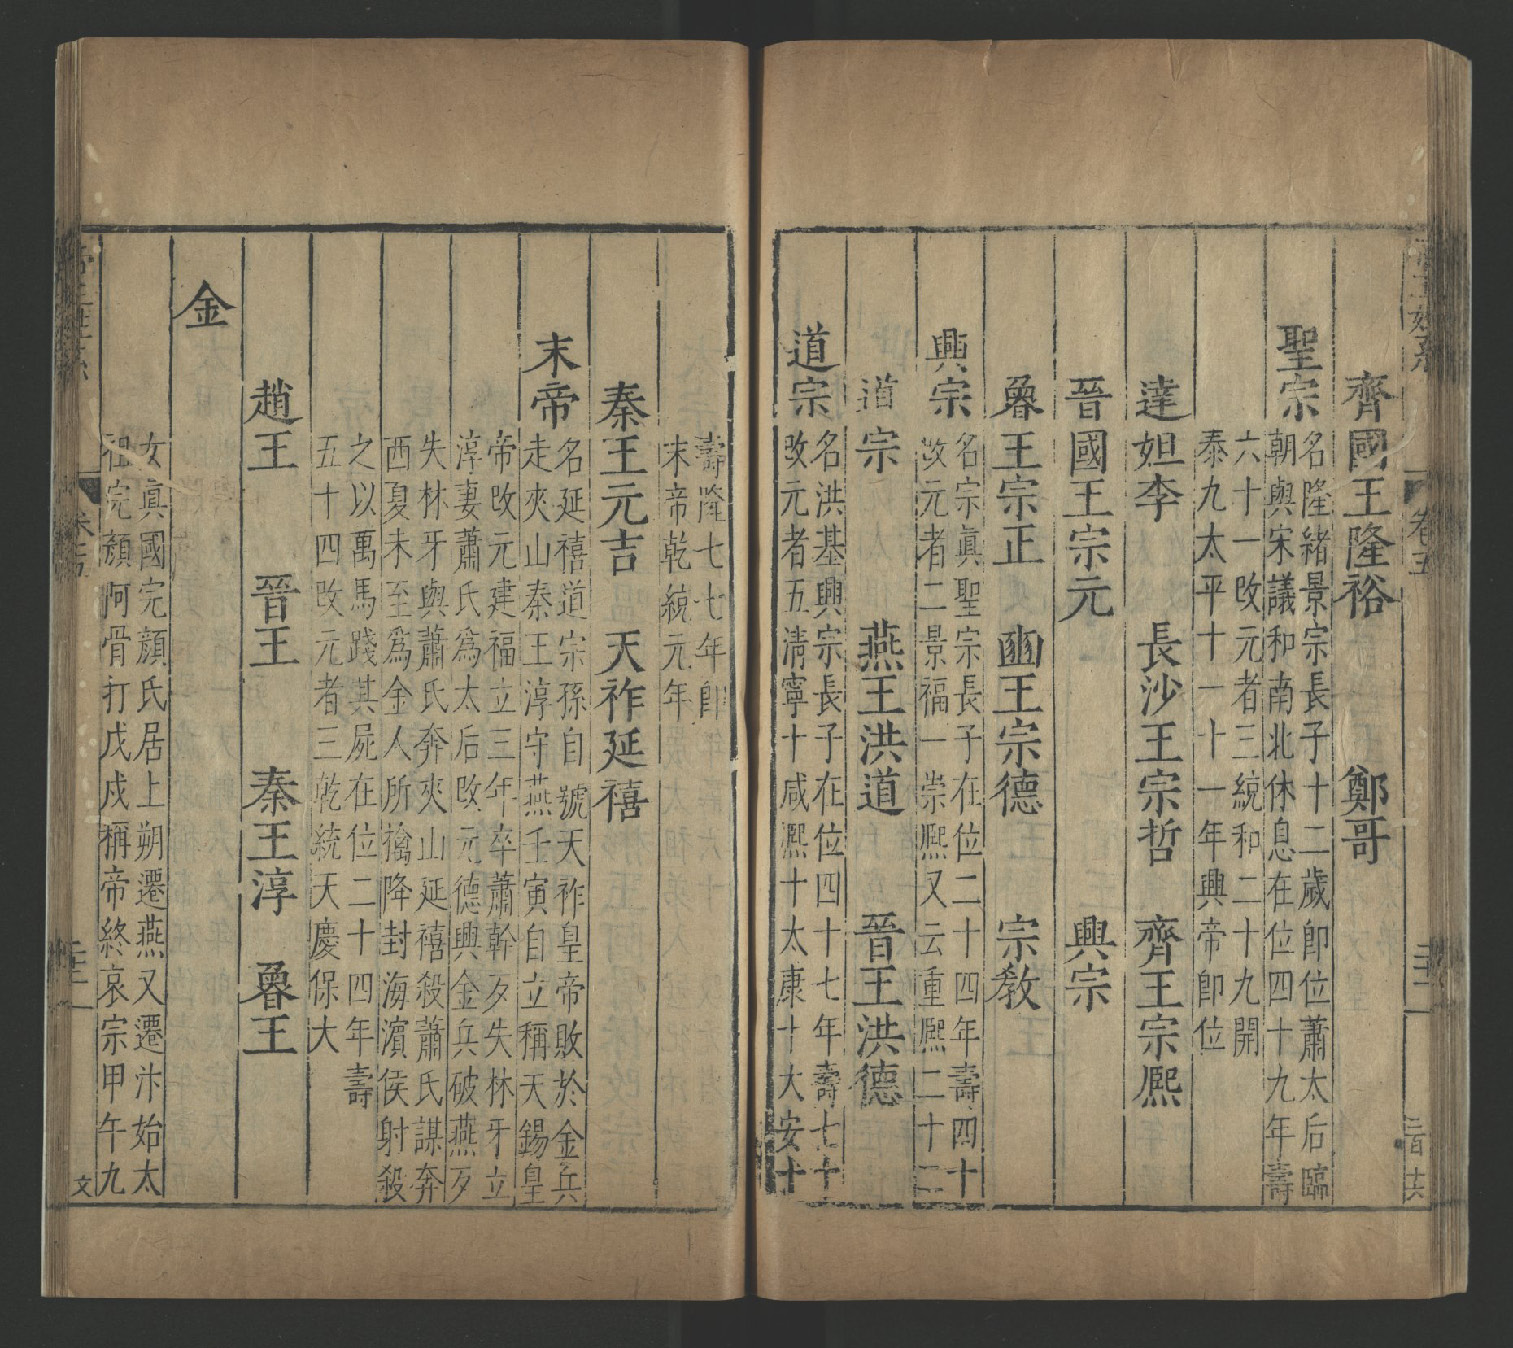 齊國王隆裕 鄭哥
聖宗
名隆緒景宗長子十二歲卽位蕭太后臨
朝與宋議和南北休息在位四十九年壽
六十一改元者三統和二十九開
泰九太平十一十一年興帝卽位
達妲李 長沙王宗哲 齊王宗熈
晉國王宗元 興宗
魯王宗正 豳王宗德 宗教
興宗
名宗眞聖宗長子在位二十四年壽四十
改元者二景福一崇熈又云重熈二十二
道宗 燕王洪道 晉王洪德
道宗
名洪基興宗長子在位四十七年壽七十
改元者五清寧十咸熈十太康十大安十
壽隆七七年卽
末帝乾統元年
秦王元吉 天祚延禧
末帝
名延禧道宗孫自號天祚皇帝敗於金兵
走夾山秦王淳守燕壬寅自立稱天錫皇
帝改元建福立三年卒蕭幹歹失林牙立
淳妻蕭氏為太后改元德興金兵破燕歹
失林牙與蕭氏奔夾山延禧殺蕭氏謀奔
西夏未至為金人所擒降封海濵侯射殺
之以萬馬踐其屍在位二十四年壽
五十四改元者三乾統天慶保大
趙王 晉王 秦王淳 魯王
金
女眞國完顏氏居上朔遷燕又遷汴始太
祖完顏阿骨打戊戍稱帝終哀宗甲午九
卷五
文